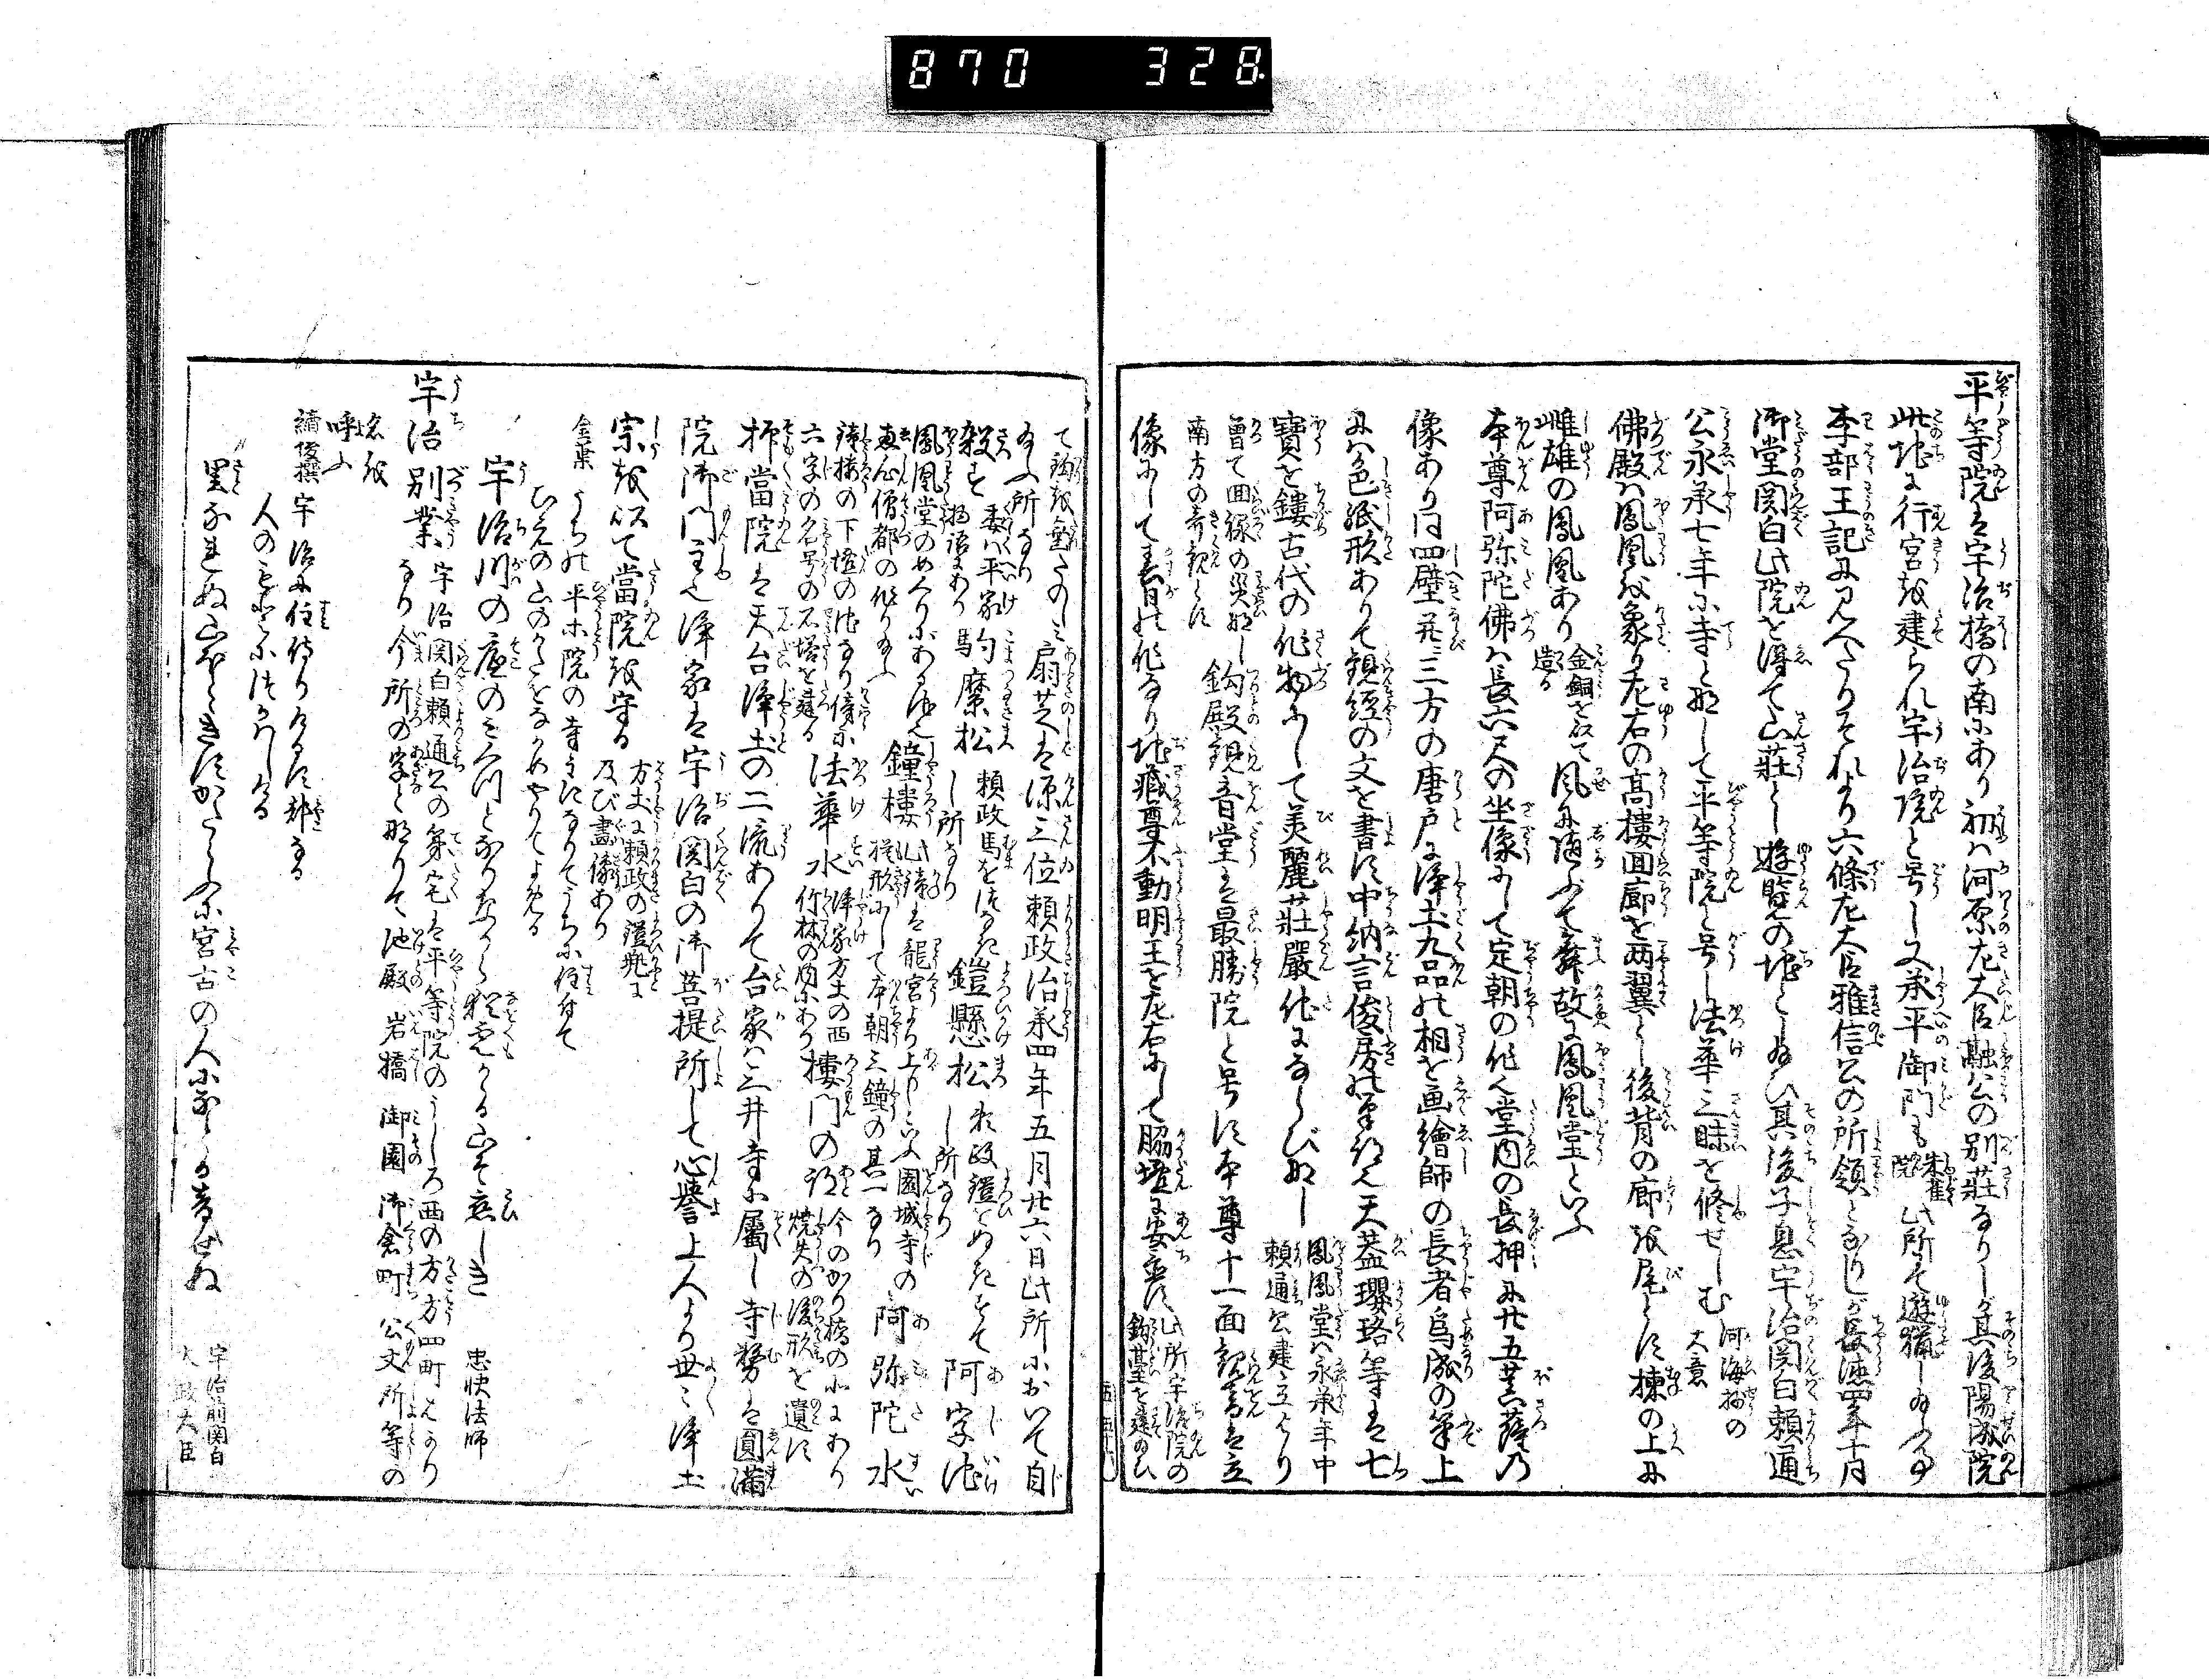 870 328
平等院は宇治橋の南にあり初は河原左大臣融公の別荘なりしが其後陽成院
此地に行宮を建られ宇治院と号し又承平御門も朱雀院此所にて遊猟し給ふ事
李部王記に見へたりそれより六條左大臣雅信公の所領となりしが長徳四年十月
御堂関白此院を得て山荘とし遊覧の地とし給ひ其後子息宇治関白頼通
公永承七年に寺と為して平等院と号し法華三昧を修せしむ河海抄の大意
佛殿は鳳凰を象り左右の高樓回廊を両翼とし後背の廊を尾とす棟の上に
雌雄の鳳凰あり金銅を以て造る風に随ふて舞故に鳳凰堂といふ
本尊阿弥陀佛は長六尺の坐像にして定朝の作也堂内の長押に廿五菩薩の
像あり同四壁并三方の唐戸に浄土九品の相を画繪師の長者為成の筆上
には色紙形ありて観経の文を書す中納言俊房の筆跡也天蓋瓔珞等は七
寶を鏤古代の作物にして美麗荘嚴他にならびなし鳳凰堂は永承年中頼通公建立より
曽て回禄の災なし釣殿観音堂は最勝院と号す本尊十一面観音は立
南方の奇観とす
像にして春日の作なり地蔵尊不動明王を左右にして脇壇に安置す此所宇治院の釣臺を建給ひ
て釣を垂たのしみ
給ふ所なり
扇芝は源三位頼政治承四年五月廿六日此所において自
殺す委は平家物語にあり駒繋松頼政馬をつなぎし所なり鎧懸松頼政鎧をぬぎすてし所なり阿字池
鳳凰堂のめぐりにある池也鐘樓此鐘は龍宮より上りしといふ園城寺の
恵心僧都の作り給ふ
形にして本朝三鐘の其一なり阿弥陀水
鐘樓の下壇の池なり傍に
六字の名号の石塔を建る法華水浄家方丈の西竹林の内にあり樓門の跡今のかり橋の北にあり焼失の後形を遺す
抑當院は天台浄土の二流ありて台家は三井寺に屬し寺務は圓満
院御門主也浄家は宇治関白の御菩提所して心誉上人より世々浄土
宗を以て當院を守る方丈に頼政の鎧兜に及び畫像あり
金葉 うぢの平等院の寺主になりてうぢに住付て
ひえの山のかたをながめやりてよめる
宇治川の底のみくづとなりながら猶雲かゝる山ぞ恋しき 忠快法師
宇治別業宇治関白頼通公の第宅は平等院のうしろ西の方方四町ばかり
なり今所の字と成りて池殿 岩橋 御園 御倉町 公文所等の
名を
呼ふ
續後撰 宇治に住侍りけるに都なる
人のもとにつかはしける
里なれぬ山ほとゝぎすかたらふに宮古の人になどか音せぬ 宇治前関白太政大臣